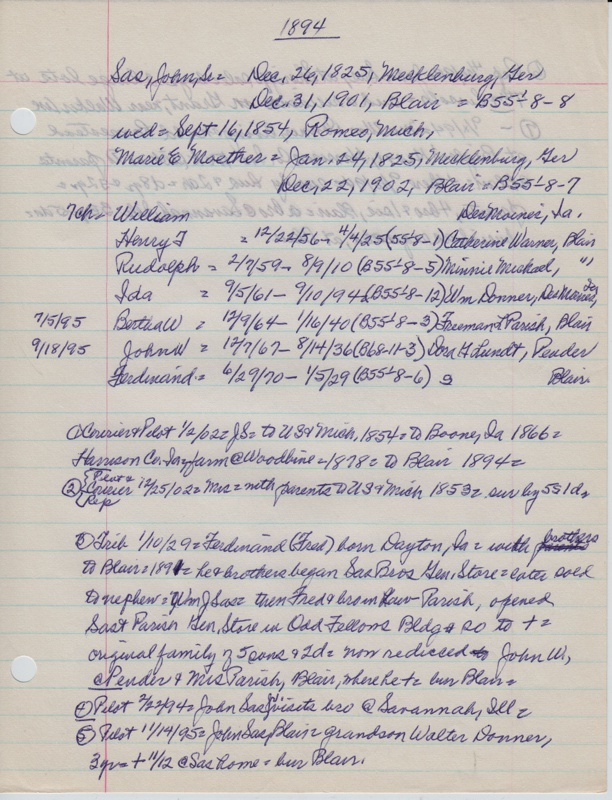 1894
Sas, John, Sr = Dec. 26, 1825, Mecklenburg, Ger
Dec. 31, 1901, Blair = B55-8-8
wed = Sept 16, 1854, Romeo, Mich,
Marie E Moether = Jan. 24, 1825, Mecklenburg, Ger
Dec, 22, 1902, Blair = B55-8-7
7ch = William Des Moines, Ia.
Henry J = 12/22/56 - 4/4/25 (55-8-1) Catherine Warner, Blair
Rudolph = 2/7/59 - 8/9/10 (B55-8-5) Minnie Michael, "
Ida = 9/5/61 - 9/10/94 (B55-8-12) Wm Donner, Des Moines,
7/5/95 Bertha W = 12/9/64 - 1/16/40 (B55-8-3) Freeman L Parish, Blair
9/18/95 John W = 12/7/67 - 8/14/36 (B68-11-3) Dora F Lundt, Pender
Ferdinand = 6/29/70 - 1/5/29 (B55-8-6) s Blair
① Courier & Pilot 1/2/02 = JS = to US & Mich, 1854 = to Boone, Ia 1866 =
Harrison Co. Ia = farm @ Woodbine = 1878 = to Blair 1894 =
② Pilot & Courier Rep 12/25/02 = Mrs = with parents to US & Mich 1853 = sur by 5s1d =
③ Trib 1/10/29 = Ferdinand (Fred) born Dayton, Ia = with brothers
to Blair = 1891 = he & brothers began Sas Bros Gen. Store = later sold
to nephew = Wm J Sas = then Fred & bro in law Parish, opened
Sas & Parish Gen, Store in Odd Fellows Bldg & so to + =
original family of 5 sons & 2d = now reduced to John W,
Pender & Mrs Parish, Blair, where he + = bur Blair =
④ Pilot 2/22/94 = John Sas Jr visits bro @ Savannah, Ill =
⑤ Pilot 11/14/95 = John Sas, Blair = grandson Walter Donner,
3yr = + 11/12 @ Sas home = bur Blair.